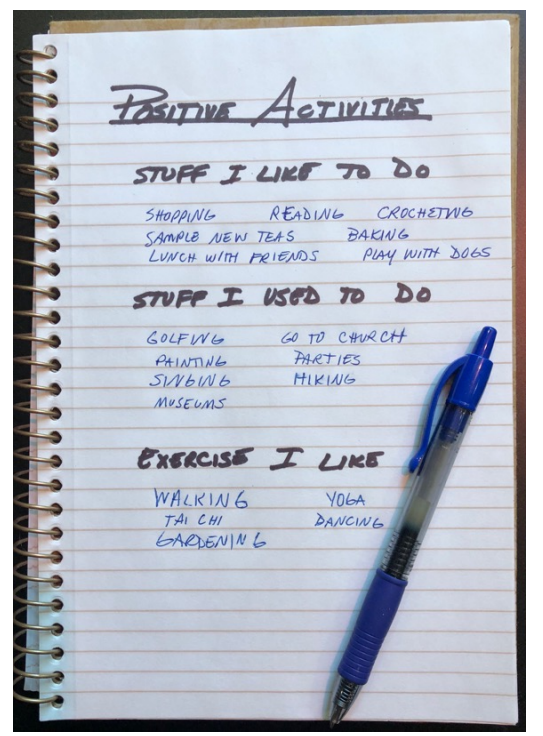 POSITIVE ACTIVITIES
STUFF I LIKE TO DO
SHOPPING READING CROCHETING
SAMPLE NEW TEAS BAKING
LUNCH WITH FRIENDS PLAY WITH DOGS
STUFF I USED TO DO
GOLFING GO TO CHURCH
PAINTING PARTIES
SINGING HIKING
MUSEUMS
EXERCISE I LIKE
WALKING YOGA
TAI CHI DANCING
GARDENING